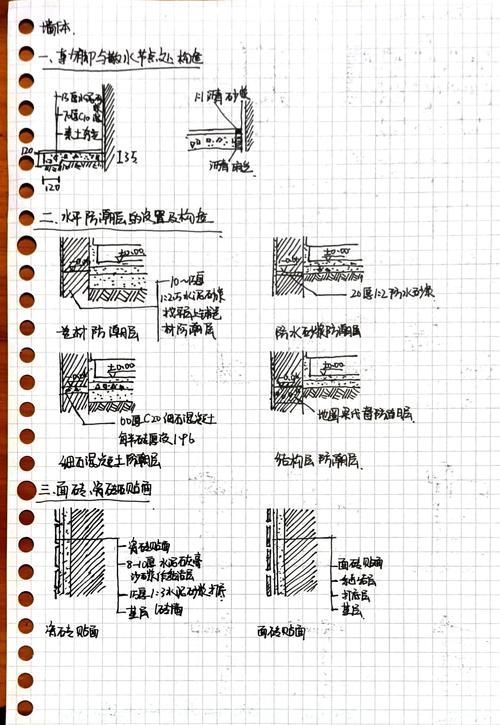 墙体.
一、勒脚与散水节点处构造
15厚水泥砂浆
70厚C10
素土夯实
1:1沥青砂浆
沥青麻丝
120
13层
120
二、水平防潮层的设置及构造
±0.00
±0.00
10~15厚
1:2.5水泥砂浆
找平层上铺卷
材防潮层
20厚1:2防水砂浆
卷材防潮层
防水砂浆防潮层
±0.00
±0.00
60厚C20细石混凝土
地圈梁代替防潮层
细石混凝土防潮层
结构层防潮层
三、面砖、瓷砖贴面
瓷砖贴面
8~10厚水泥石灰膏
砂浆作结合层
15厚1:3水泥砂浆打底
基层 砖墙
面砖贴面
结合层
打底层
基层
瓷砖贴面
面砖贴面